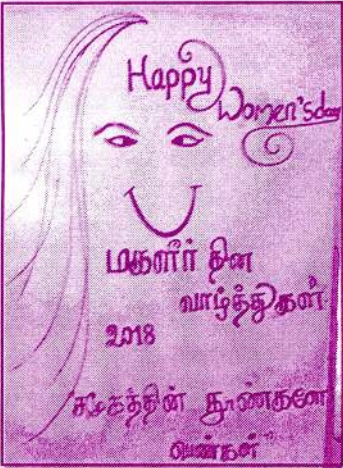 Happy
Women's day
மகளிர் தின
வாழ்த்துகள்.
2018
சமூகத்தின் தூண்களே
பெண்கள்